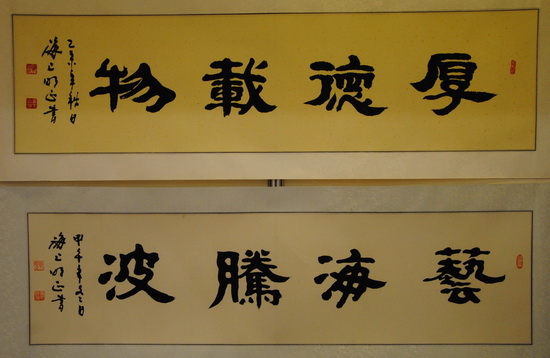 厚德載物
乙未年秋日
海上明正書
藝海騰波
甲午年
海上明正書